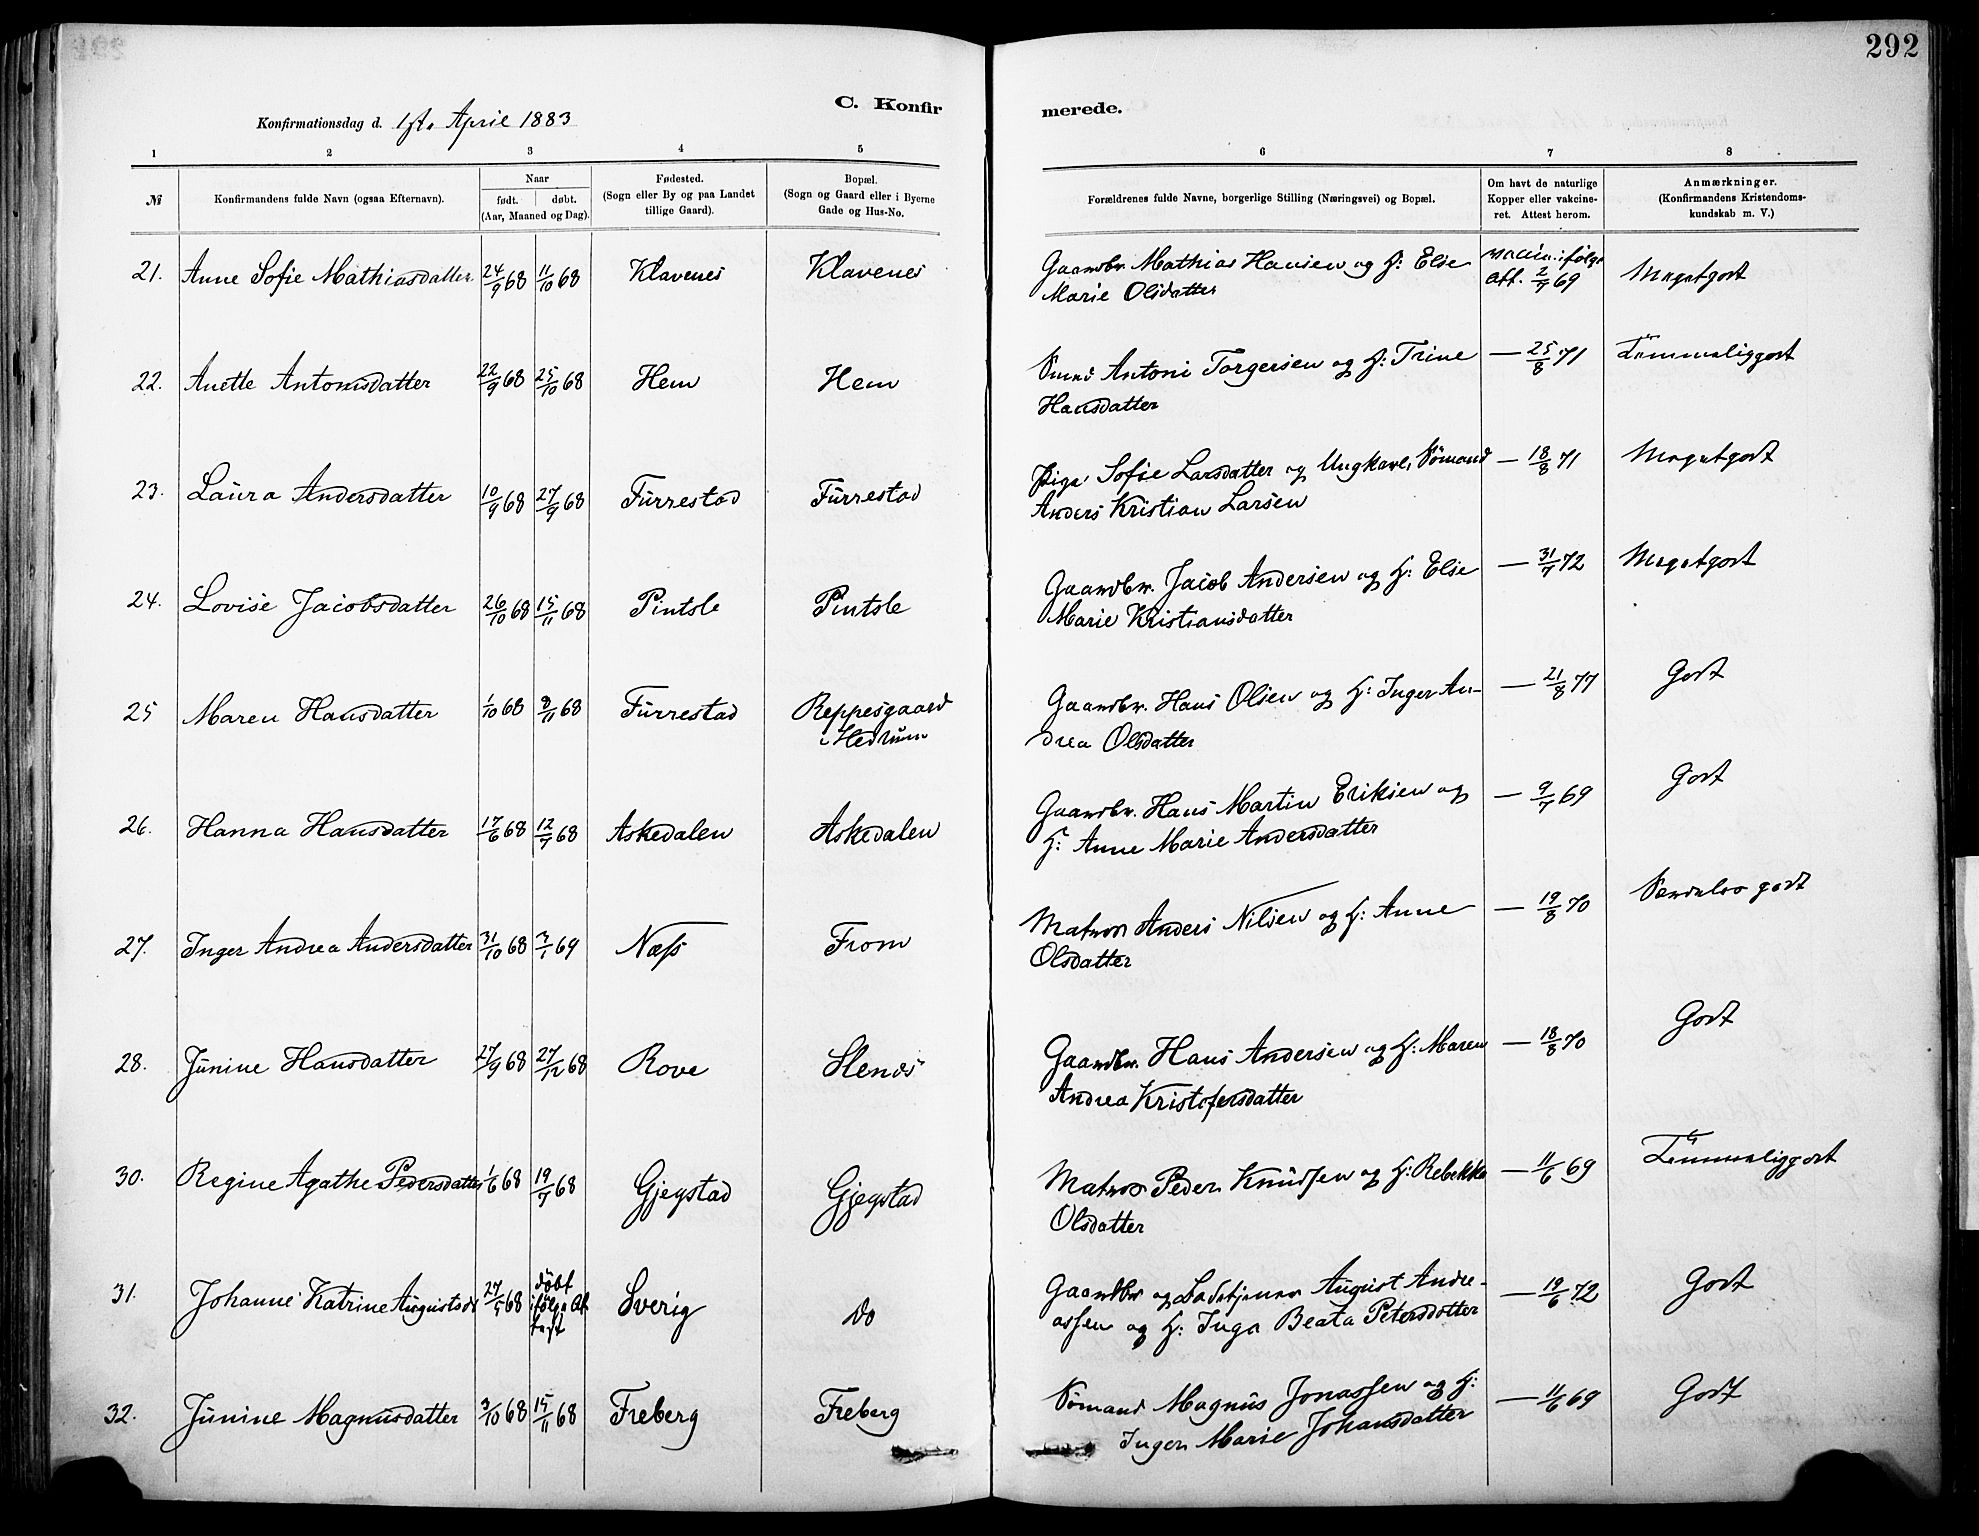 292
C. Konfir merede.
Konfirmationsdag d. 1ste April 1883
1 2 3 4 5 6 7 8
№
Konfirmandens fulde Navn (ogsaa Efternavn).
Naar
født. døbt.
(Aar, Maaned og Dag).
Fødested.
(Sogn eller By og paa Landet
tillige Gaard).
Bopæl.
(Sogn og Gaard eller i Byerne
Gade og Hus-No.
Forældrenes fulde Navne, borgerlige Stilling (Næringsvei) og Bopæl.
Om havt de naturlige
Kopper eller vakcine-
ret. Attest herom.
Anmærkninger.
(Konfirmandens Kristendoms-
kundskab m. V.)
21. Anne Sofie Mathiasdatter 24/9 68 11/10 68 Klavenes Klavenes Gaardbr. Mathias Hansen og H: Else vaccin. ifølge
Marie Olsdatter att. 2/7 69 Megetgodt
22. Anette Antonisdatter 22/9 68 25/10 68 Hem Hem Smed Antoni Torgersen og H: Trine — 25/8 71 Temmeliggodt
Hansdatter
23. Laura Andersdatter 10/9 68 27/9 68 Furrestad Furrestad Pige Sofie Larsdatter og Ungkarl, Sömand — 18/8 71 Megetgodt
Anders Kristian Larsen
24. Lovise Jacobsdatter 26/10 68 15/11 68 Pintsle Pintsle Gaardbr. Jacob Andersen og H: Else — 31/7 72 Megetgodt
Marie Kristiansdatter
25 Maren Hansdatter 1/10 68 8/11 68 Furrestad Reppesgaard Gaardbr. Hans Olsen og H: Inger An- — 21/8 77 Godt
i Hedrum drea Olsdatter
26. Hanna Hansdatter 17/6 68 12/7 68 Askedalen Askedalen Gaardbr. Hans Martin Eriksen og — 9/7 69 Godt
H: Anne Marie Andersdatter
27. Inger Andrea Andersdatter 31/10 68 3/1 69 Næss From Matros Anders Nilsen og H: Anne — 19/8 70 Særdeles godt
Olsdatter
28. Junine Hansdatter 27/9 68 27/12 68 Rove Slenes Gaardbr. Hans Andersen og H: Maren — 18/8 70 Godt
Andrea Kristofersdatter
30. Regine Agathe Pedersdatter 1/6 68 19/7 68 Gjegstad Gjegstad Matros Peder Knudsen og H: Rebekka — 11/6 69 Temmeliggodt
Olsdatter
31. Johanne Katrine Augustsdt 27/5 68 döbt ifölge At test Sverig do Gaardbr og Ladetjener August Andre- — 19/6 72 Godt
assen og H: Inga Beata Petersdotter
32. Junine Magnusdatter 3/10 68 15/11 68 Freberg Freberg Sömand Magnus Jonassen og H: — 11/6 69 Godt
Inger Marie Johansdatter